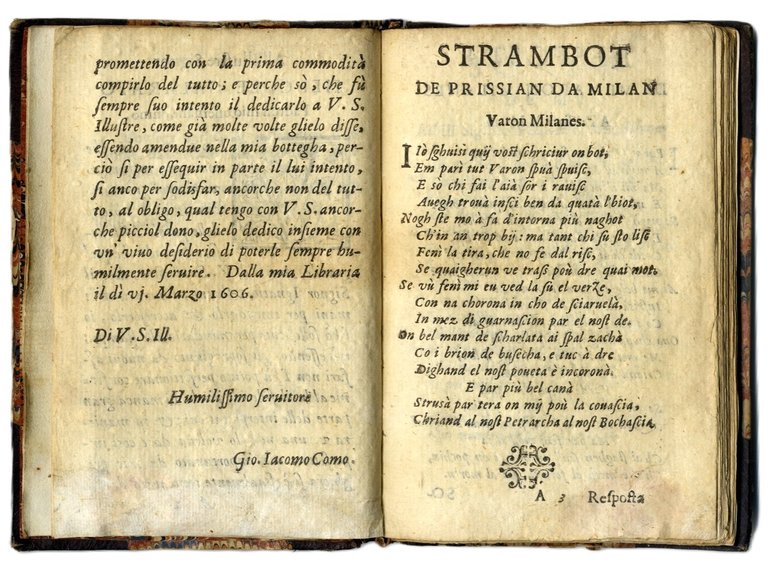 promettendo con la prima commodità
compirlo del tutto; e perche sò, che fù
sempre suo intento il dedicarlo a V. S.
Illustre, come già molte volte glielo disse,
essendo amendue nella mia bottegha, per-
ciò sì per essequir in parte il lui intento,
sì anco per sodisfar, ancorche non del tut-
to, al obligo, qual tengo con V. S. ancor-
che picciol dono, glielo dedico insieme con
vn viuo desiderio di poterle sempre hu-
milmente seruire. Dalla mia Libraria
il dì vj. Marzo 1606.
Di V. S. Ill.
Humilissimo seruitore
Gio. Iacomo Como.
STRAMBOT
DE PRISSIAN DA MILAN
Varon Milanes.
I lò sghuisì quÿ vost schriciur on bot,
Em parì tut Varon spuà spuisc,
E so chi fai l'aià sor i rauisc
Auegh trouà insci ben da quatà l'biot,
Nogh ste mo à fa d'intorna più naghot
Ch'in an trop bÿ: ma tant chi fu sto lisc
Fenì la tira, che no se dal risc,
Se quaigherun ve trass poù dre quai mot.
Se vù fenì mi eu ved la sù el verze,
Con na chorona in cho de sciaruelà,
In mez di guarnascion par el nost de.
On bel mant de scharlata ai spal zachà
Co i brion de busecha, e tuc à dre
Dighand el nost poueta è incoronà.
E par più bel canà
Strusà par tera on mÿ poù la couascia,
Chriand al nost Petrarcha al nost Bochascia.
A 3 Resposta